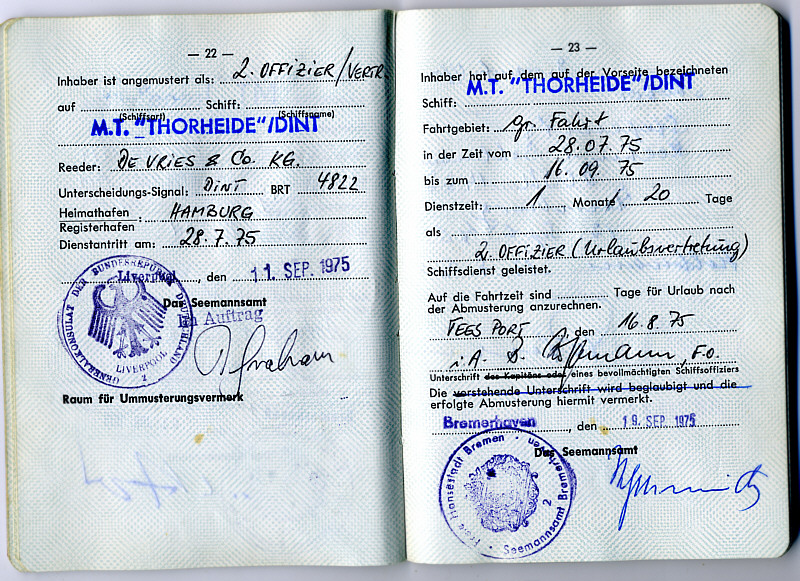 — 22 —
Inhaber ist angemustert als: 2. OFFIZIER/VERTR.
auf Schiff:
(Schiffsart) (Schiffsname)
M.T. "THORHEIDE"/DINT
Reeder: DE VRIES & Co. KG.
Unterscheidungs-Signal: DINT BRT 4822
Heimathafen : HAMBURG
Registerhafen
Dienstantritt am: 28.7.75
Liverpool, den 11. SEP. 1975
Das Seemannsamt
Im Auftrag
GENERALKONSULAT DER BUNDESREPUBLIK DEUTSCHLAND
LIVERPOOL
2
Raum für Ummusterungsvermerk
— 23 —
Inhaber hat auf dem auf der Vorseite bezeichneten
M.T. "THORHEIDE"/DINT
Schiff:
Fahrtgebiet: gr. Fahrt
in der Zeit vom 28.07.75
bis zum 16.09.75
Dienstzeit: 1 Monate 20 Tage
als
2. OFFIZIER (Urlaubsvertretung)
Schiffsdienst geleistet.
Auf die Fahrtzeit sind Tage für Urlaub nach
der Abmusterung anzurechnen.
TEES PORT, den 16.8.75
i.A. F.O.
Unterschrift des Kapitäns oder eines bevollmächtigten Schiffsoffiziers
Die vorstehende Unterschrift wird beglaubigt und die
erfolgte Abmusterung hiermit vermerkt.
Bremerhaven, den 19. SEP. 1975
Das Seemannsamt
Freie Hansestadt Bremen · Seemannsamt Bremerhaven ·
2